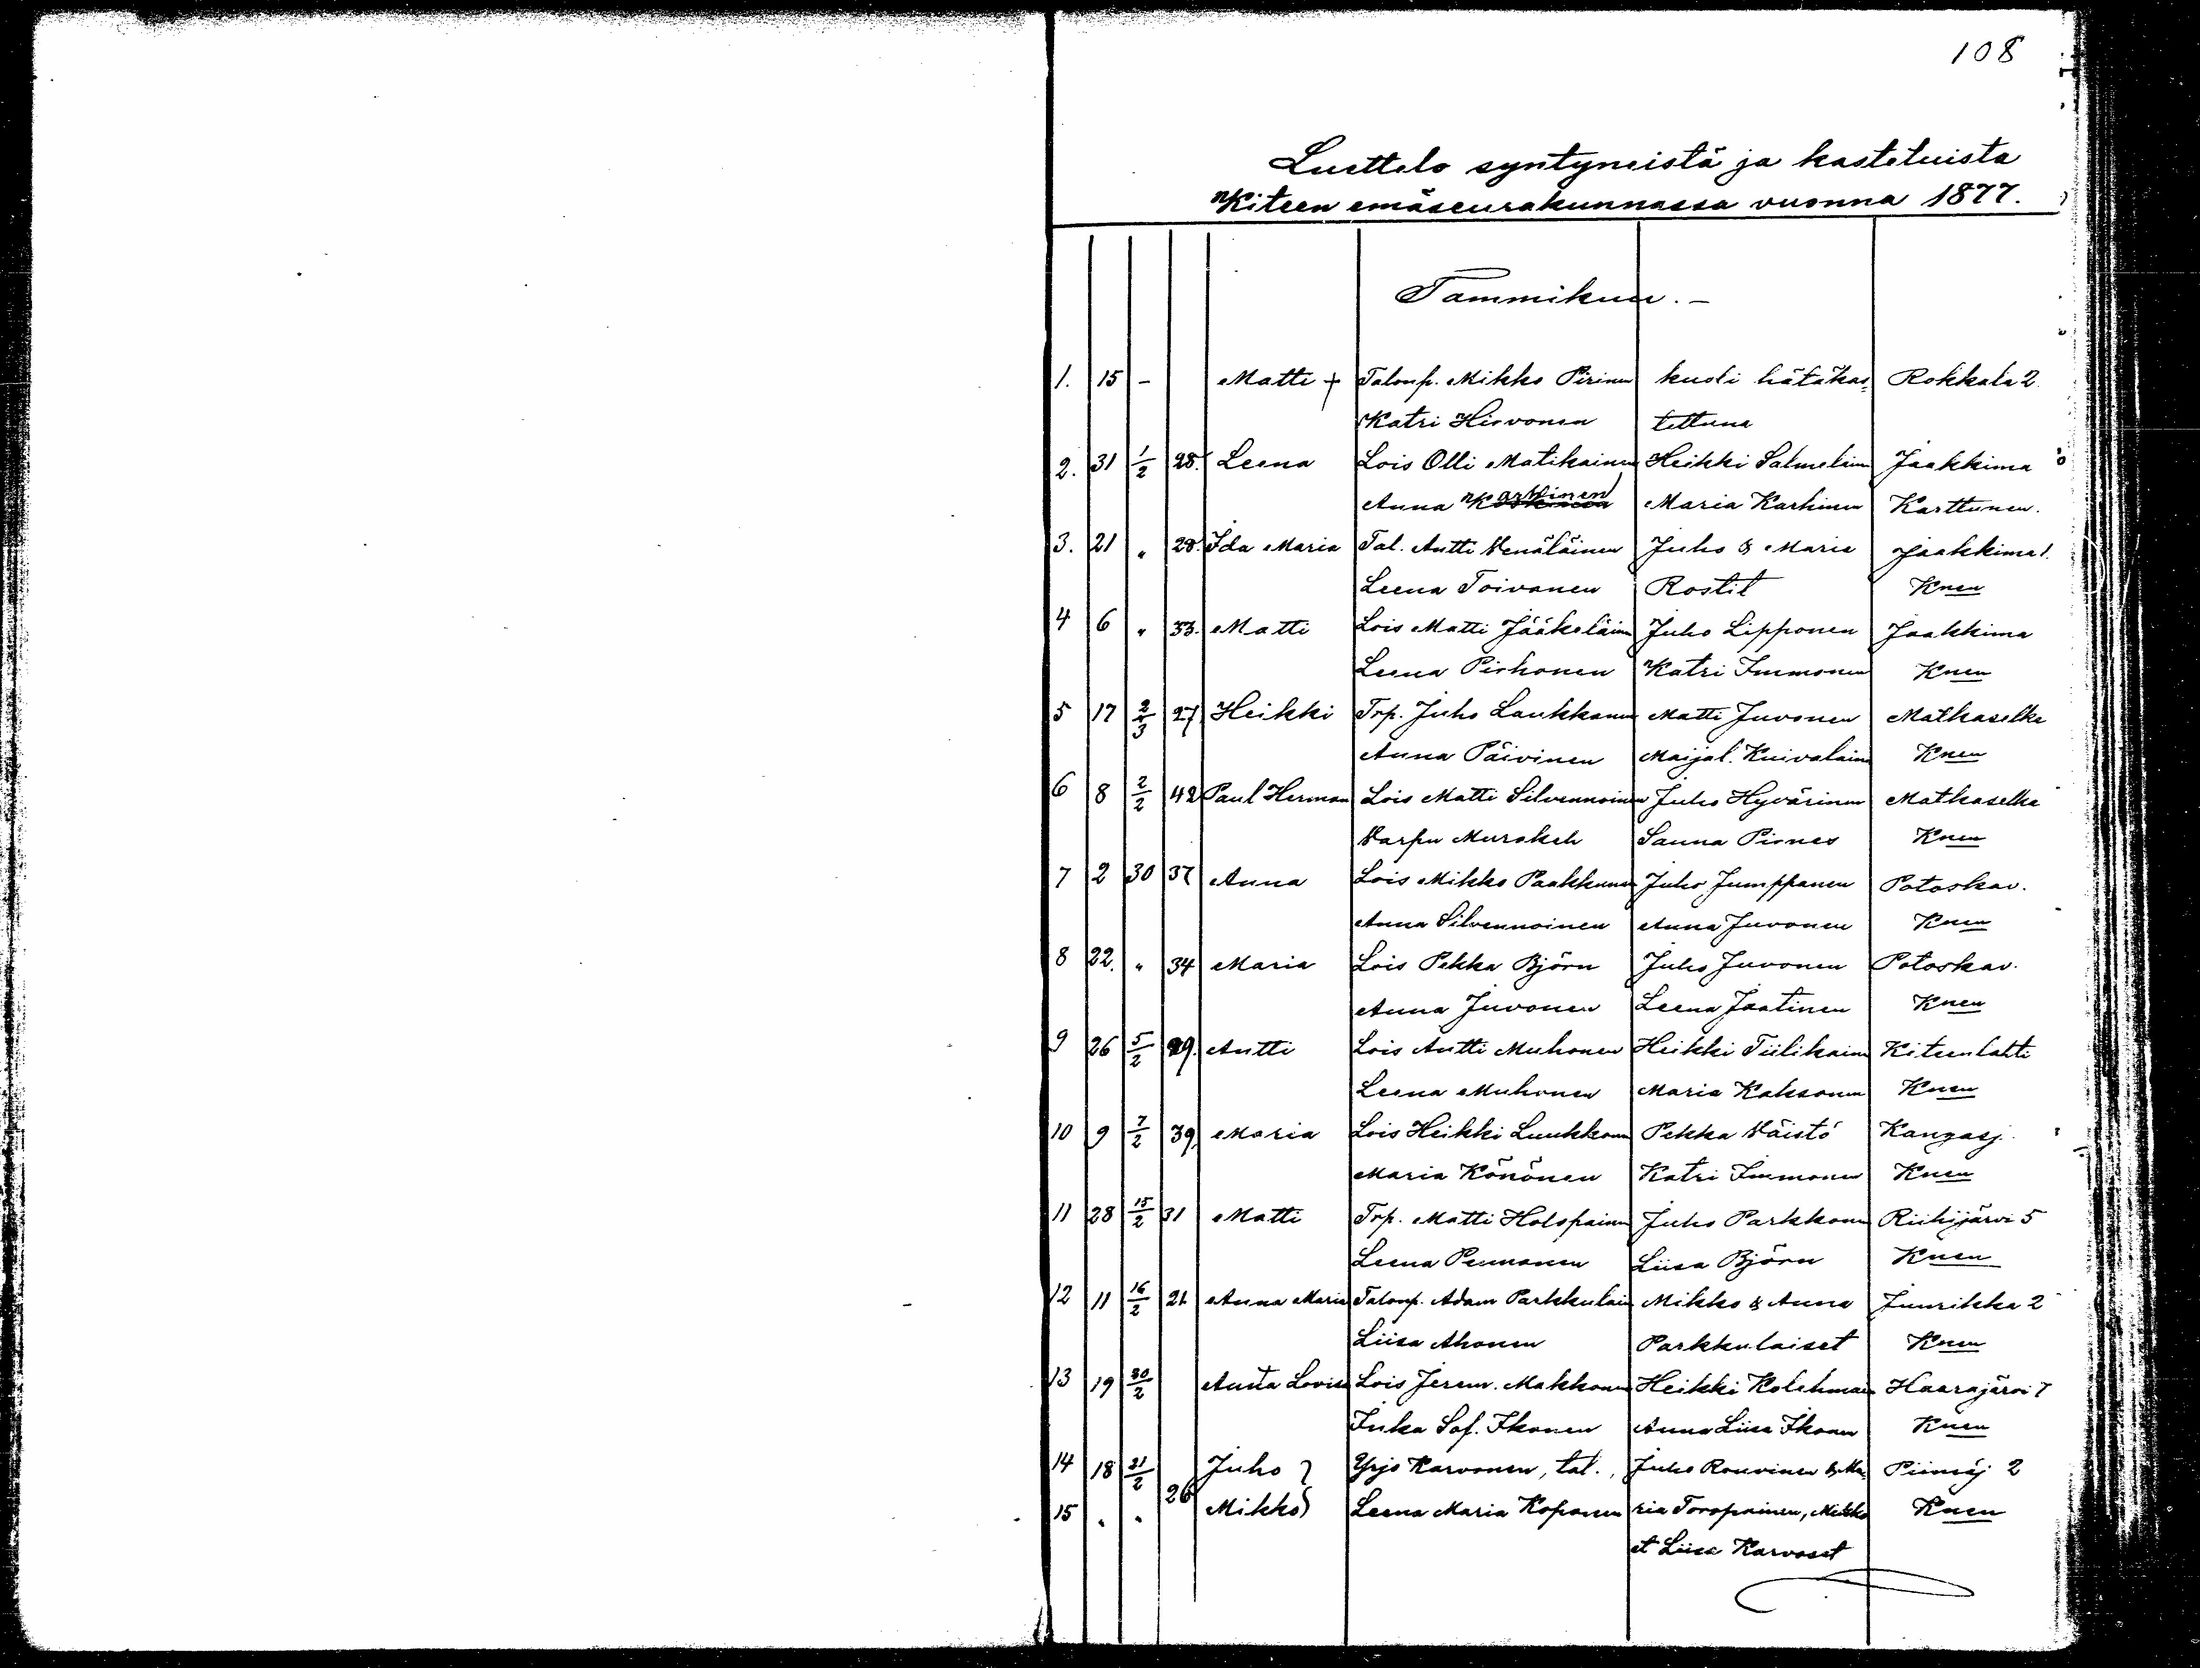 108
Luettelo syntyneistä ja kastetuista
Kiteen emäseurakunnassa vuonna 1877.
Tammikuu. —
1. 15 – Matti + Talonp. Mikko Pirinen kuoli hätäkas- Rokkala 2.
Katri Hirvonen tettuna
2. 31 1/2 28. Leena Lois Olli Matikainen Heikki Salmelain Jaakkima
Anna Karhinen Maria Karhinen Karttunen.
3. 21 " 28. Ida Maria Tal. Antti Venäläinen Juho & Maria Jaakkima 1.
Leena Toivanen Rostit Knen
4 6 " 33. Matti Lois Matti Jääkeläin Juho Lipponen Jaakkima
Leena Pirhonen Katri Immonen Knen
5 17 2/3 27 Heikki Trp. Juho Laukkanen Matti Juvonen Matkaselkä
Anna Päivinen Maijal. Kuivalain Knen
6 8 2/2 42 Paul Herman Lois Matti Silvennoinen Juho Hyvärinen Matkaselkä
Varpu Murakeh Sanna Pirnes Knen
7 2 30 37 Anna Lois Mikko Paakkunen Juho Jumppanen Potoskav.
Anna Silvennoinen Anna Juvonen Knen
8 22. " 34 Maria Lois Pekka Björn Juho Juvonen Potoskav.
Anna Juvonen Leena Jaatinen Knen
9 26 5/2 29. Antti Lois Antti Muhonen Heikki Tiilikain Kiteenlahti
Leena Muhonen Maria Kaksonen Knen
10 9 7/2 39, Maria Lois Heikki Luukkonen Pekka Väistö Kangasj.
Maria Könönen Katri Immonen Knen
11 28 15/2 31 Matti Trp. Matti Holopainen Juho Parkkonen Riihijärvi 5
Leena Pennanen Liisa Björn Knen
12 11 16/2 21 Anna Maria Talonp. Adam Parkkulain Mikko & Anna Juurikka 2
Liisa Ahonen Parkkulaiset Knen
13 19 20/2 Lovisa Lois Jerem. Makkonen Heikki Kolehmain Haarajärvi 7
Inka Sof. Ikonen Anna Liisa Ikonen Knen
14 18 21/2 Juho } Yrjö Karvonen, tal., Juho Rouvinen & Ma- Piimäj 2
15 " " 26 Mikko } Leena Maria Koponen ria Toropainen, Mikko Knen
et Liisa Karvoset